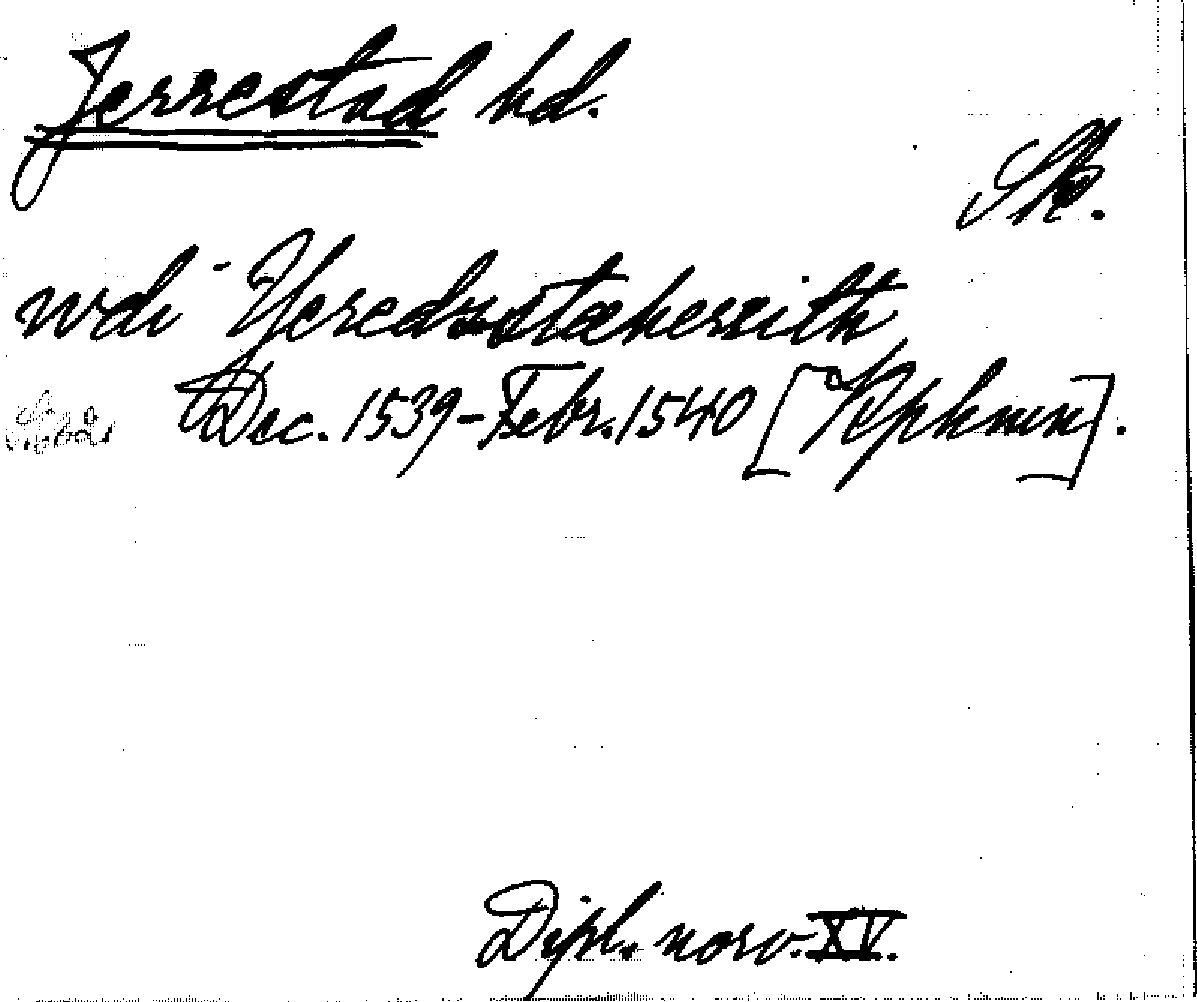 Jerrestad hd.
Sk.
wdi Yeredzstæherrith
Dec. 1539-Febr. 1540 [Kphmn].
Dipl. norv. XV.